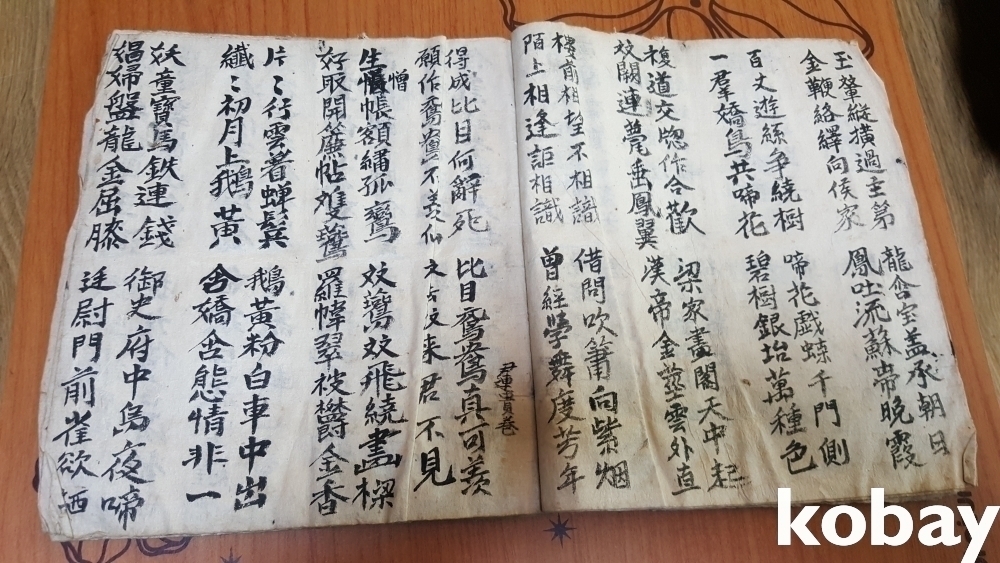 玉輦縱橫過主第
金鞭絡繹向侯家
龍含宝盖承朝日
鳳吐流蘇帶晚霞
百丈遊絲争繞樹
一羣嬌鳥共啼花
啼花戲蝶千門側
碧樹銀坮萬種色
複道交愡作合歡
双闕連甍垂鳳翼
梁家畫閣天中起
漢帝金莖雲外直
樓前相望不相諳
陌上相逢詎相識
借問吹簫向紫烟
曾經學舞度芳年
得成比目何辭死
願作鴛鴦不羨仙
比目鴛鴦真可羨
双去双来君不見
生憎帳額繡孤鸞
好取開簾帖雙鷰
双鷰双飛繞畵樑
羅幃翠被欝金香
片〻行雲着蟬鬂
纖〻初月上鵝黃
鵝黃粉白車中出
含嬌含態情非一
妖童寶馬鉄連錢
娼婦盤龍金屈膝
御史府中烏夜啼
廷尉門前雀欲栖
kobay